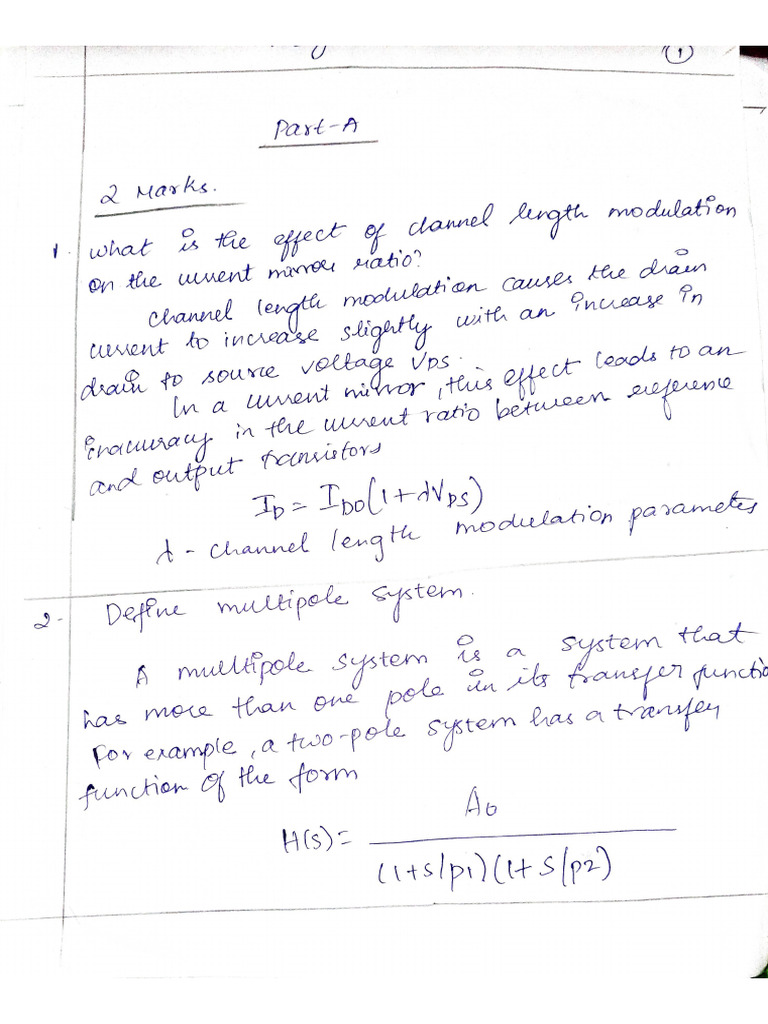 1
Part-A
2 Marks.
1. What is the effect of channel length modulation
on the current mirror ratio?
Channel length modulation causes the drain
current to increase slightly with an increase in
drain to source voltage VDS.
In a current mirror, this effect leads to an
inaccuracy in the current ratio between reference
and output transistors
I_D = I_DO(1+λV_DS)
λ - channel length modulation parameter
2- Define multipole system.
A multipole system is a system that
has more than one pole in its transfer functio
For example, a two-pole system has a transfer
function of the form
H(s) = A_0 / (1+s/p1)(1+s/p2)